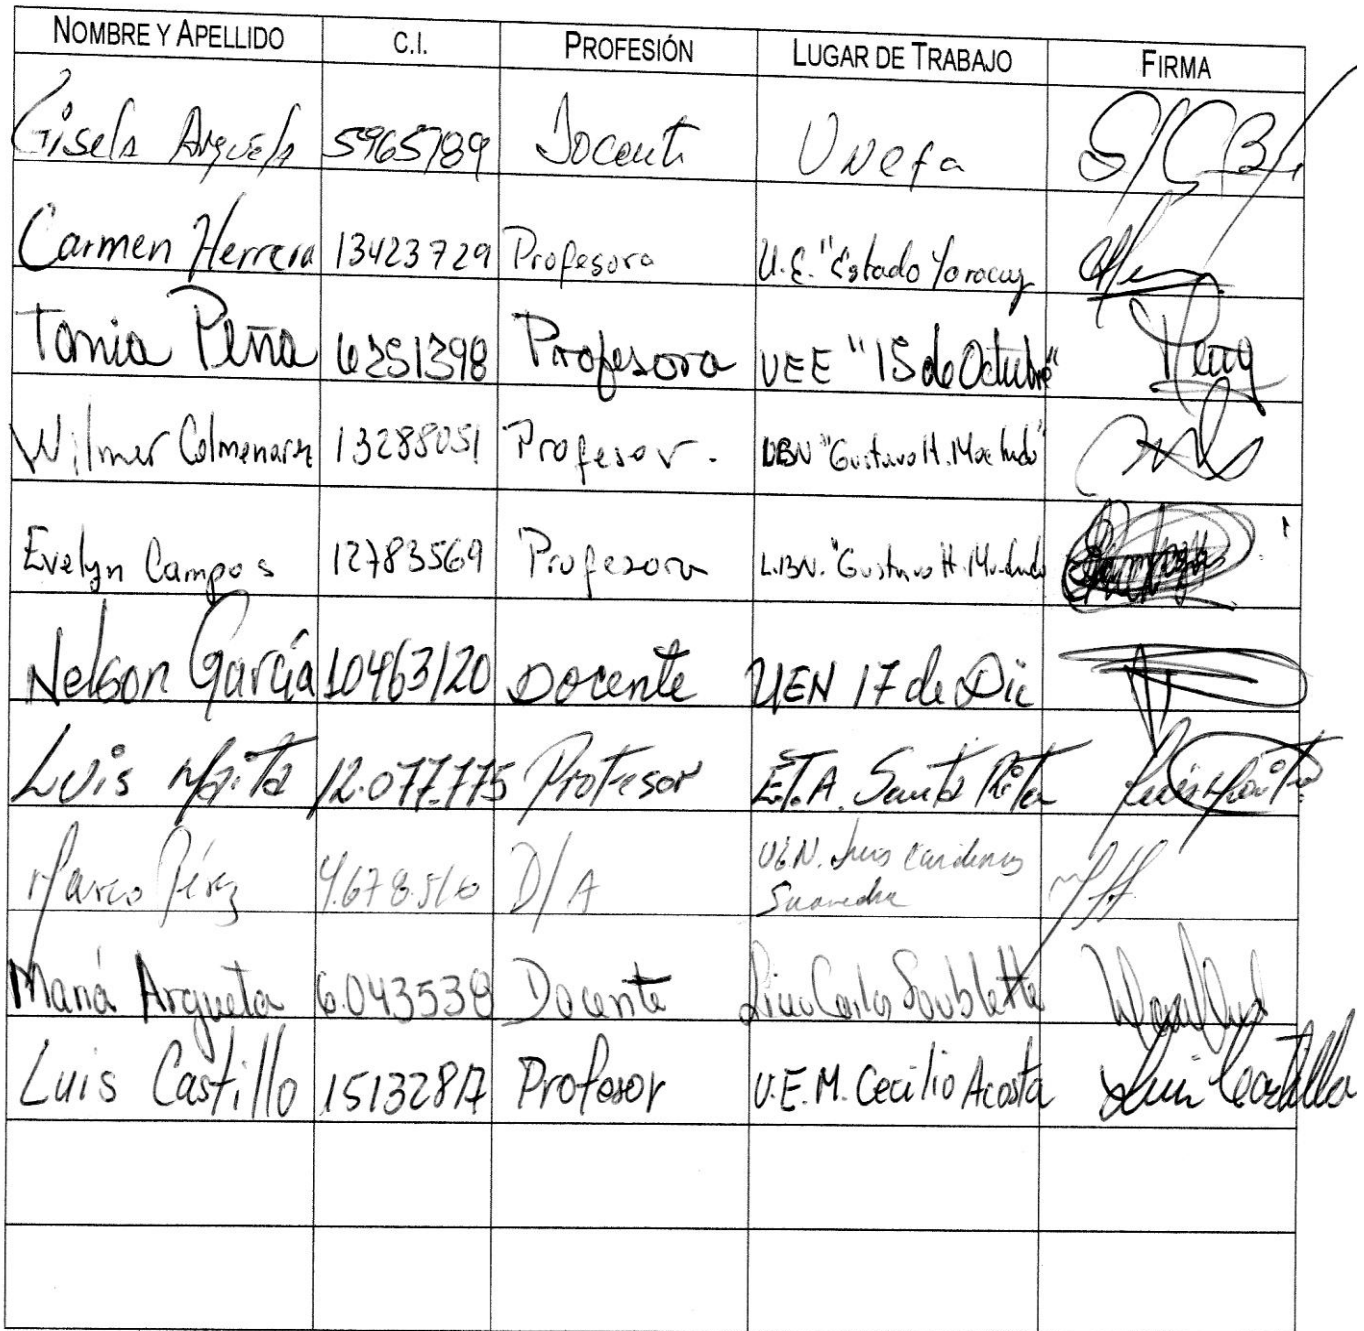 NOMBRE Y APELLIDO C.I. PROFESIÓN LUGAR DE TRABAJO FIRMA
Gisela 5965189 Docente Unefa
Carmen Herrera 13423729 Profesora U.E. "Estado Yaracuy
Tania Peña 6251398 Profesora UEE "15 de Octubre"
Wilmer Colmenarez 13288051 Profesor. "Gustavo H. Machado"
Evelyn Campos 12783569 Profesora L.B.N. "Gustavo H. Machado
Nelson García 10463120 Docente UEN 17 de Dic
Luis Maita 12.077.775 Profesor E.T.A. Santa Rita Luis Maita
Marco Pérez 4.678.510 D/A U.E.N. Luis Cardenas
Saavedra
María Argueta 6.043538 Docente Liceo Carlos Soublette
Luis Castillo 15132817 Profesor U.E.M. Cecilio Acosta Luis Castillo